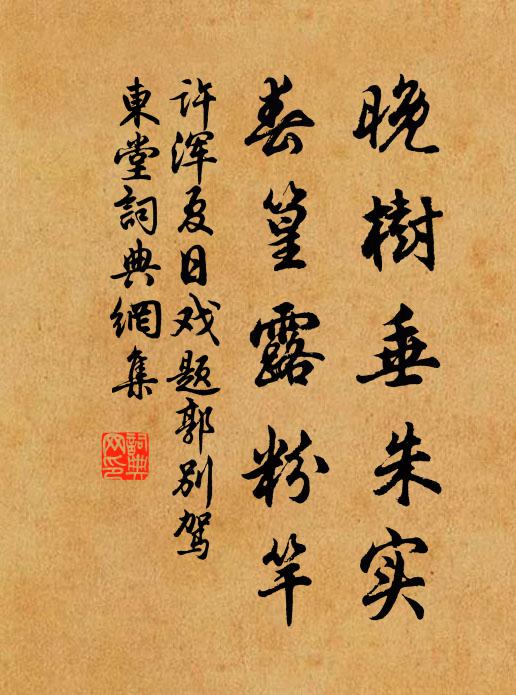 晚樹垂朱实
春篁露粉竿
许浑夏日戏题郭别驾
東堂詞典網集
詞典
网印